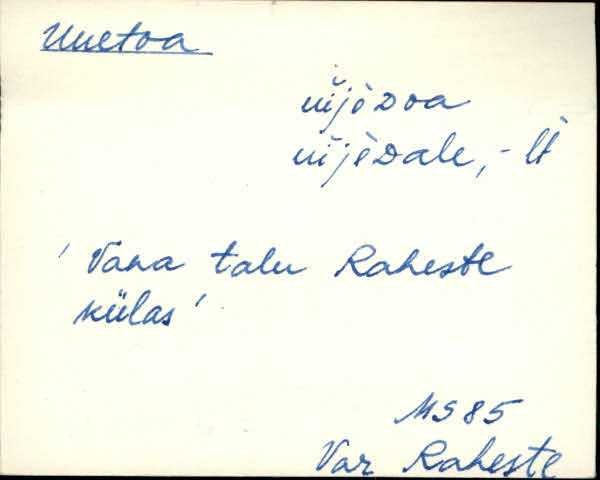 Uuetoa
ŭijèᴅoa
ŭijèᴅale, - lt̀
'Vana talu Raheste
külas'
MS 85
Var Raheste